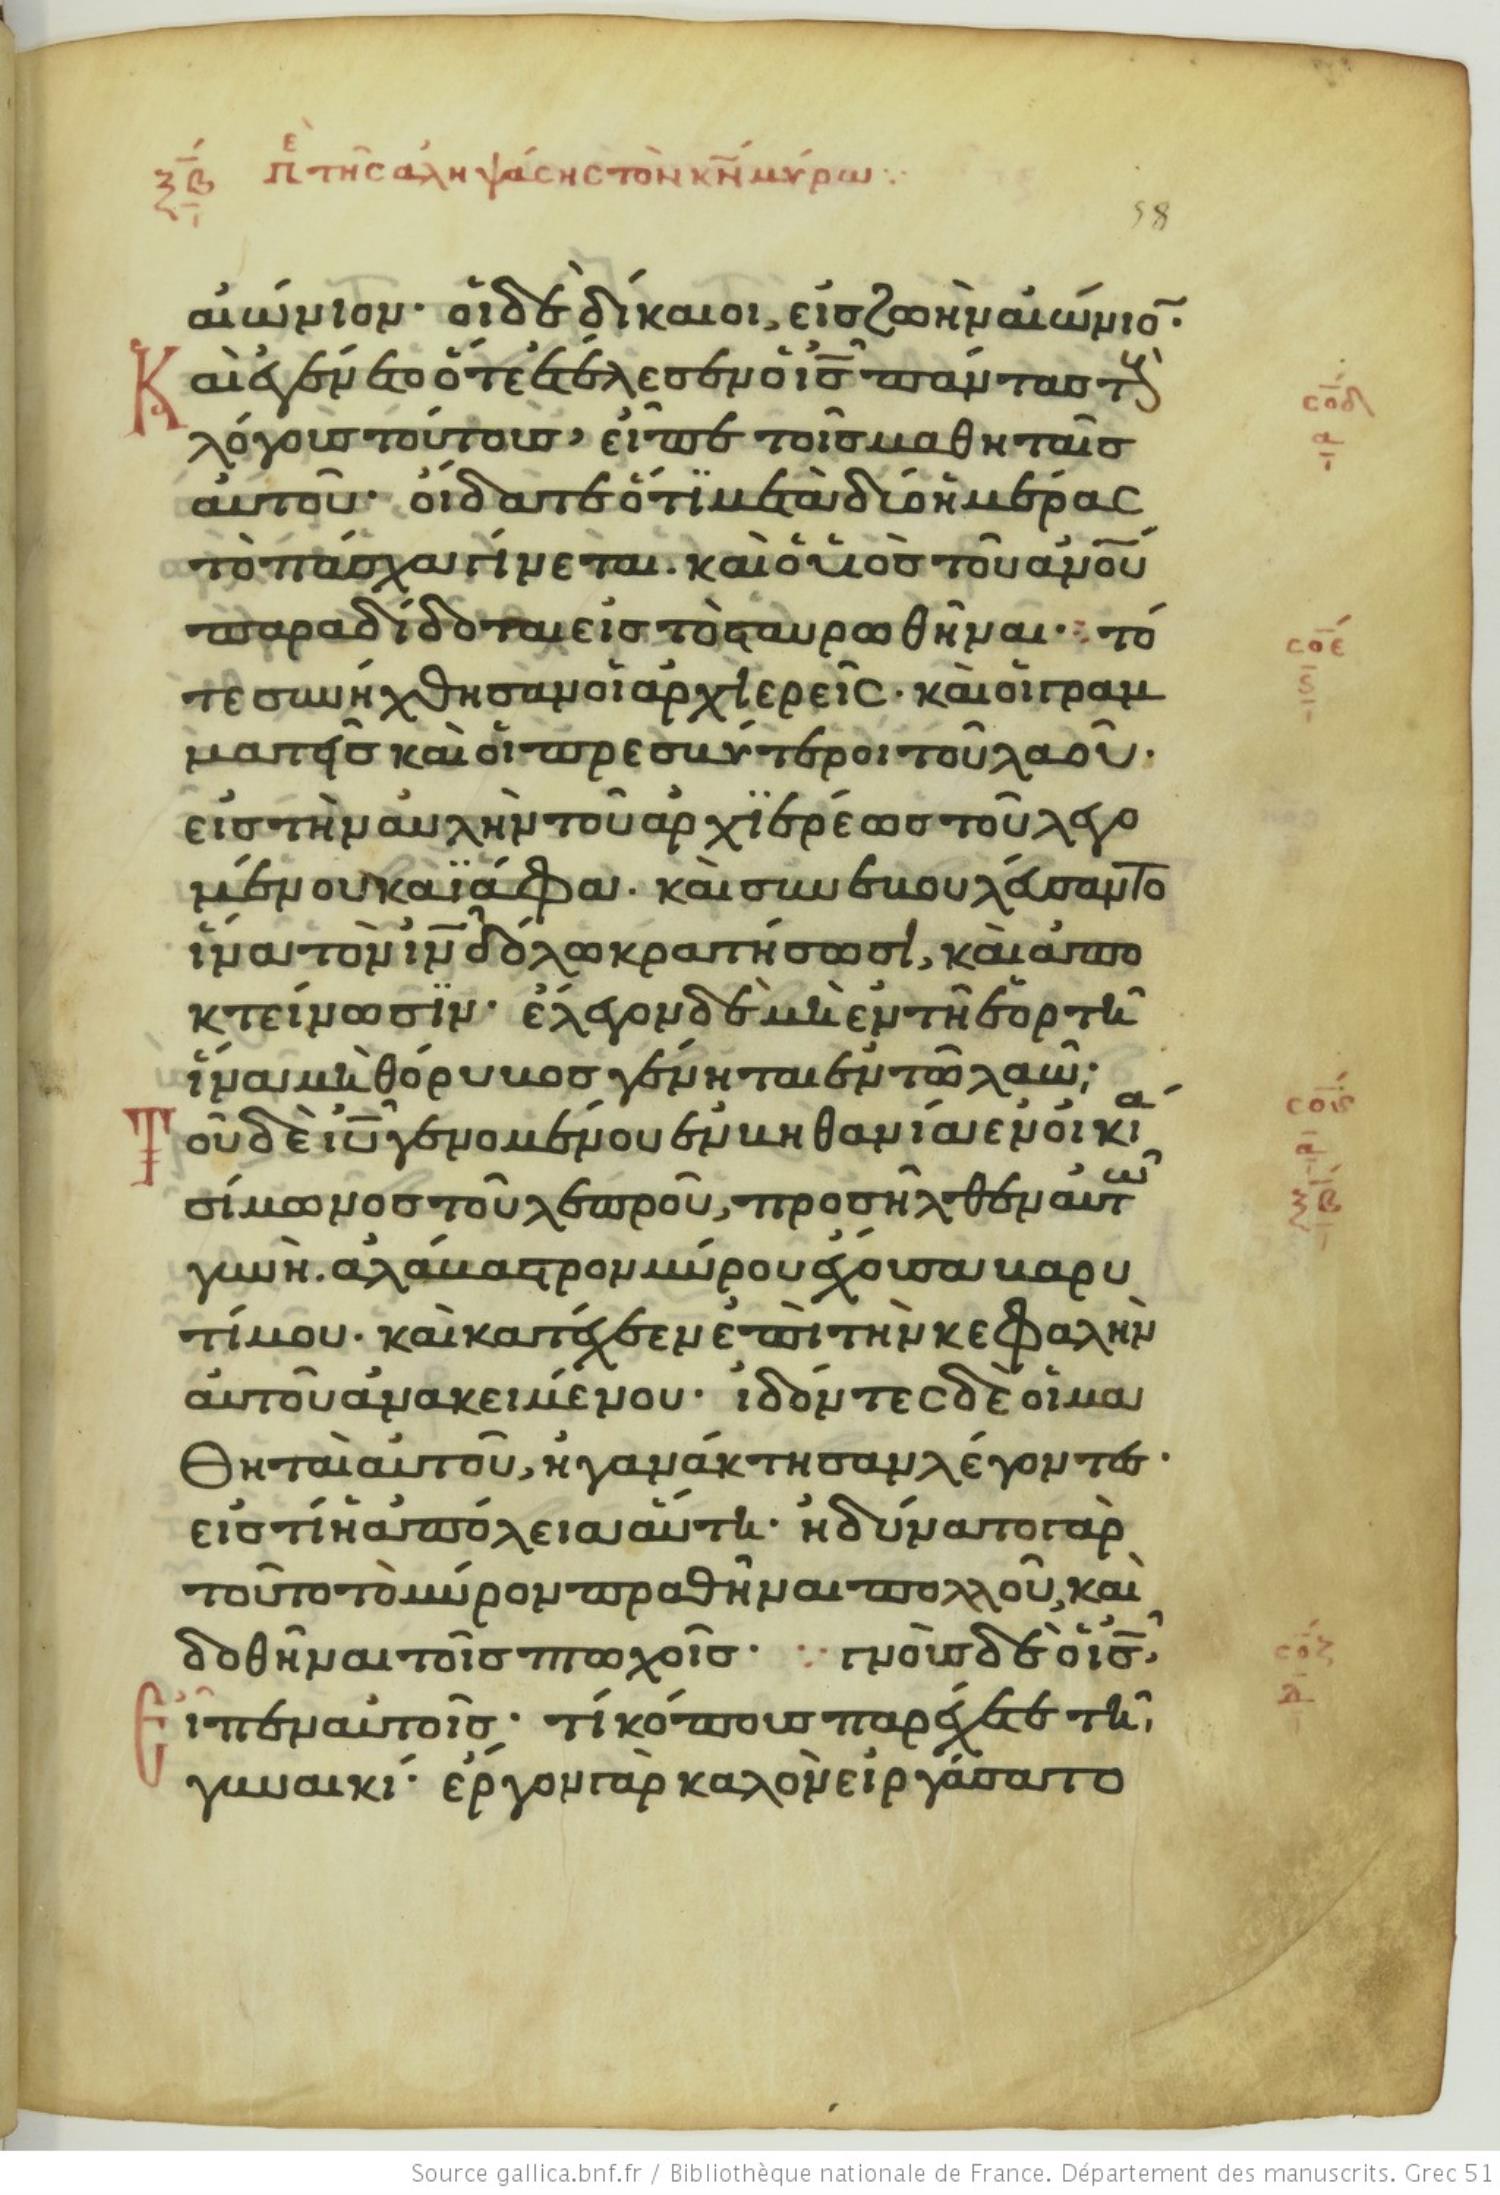 ξβ Πε τῆς ἀληψάσης τὸν κν μύρω:
58
αἰώνιον· οἱ δὲ δίκαιοι, εἰς ζωὴν αἰώνιον·
Καὶ ἐγένετο ὅτε ἐτέλεσεν ὁ ις πάντας τοὺς
λόγους τούτους, εἶπε τοῖς μαθηταῖς
αὐτοῦ· οἴδατε ὅτϊ μετὰ δύο ἡμέρας
τὸ πάσχα γίνεται. καὶ ὁ υἱὸς τοῦ ανου
παραδίδοται εἰς τὸ σταυρωθῆναι· τό
τε συνήχθησαν οἱ ἀρχιερεῖς· καὶ οἱ γραμ
ματεῖς καὶ οἱ πρεσβύτεροι τοῦ λαοῦ·
εἰς τὴν αὐλὴν τοῦ ἀρχϊερέως τοῦ λεγο
μένου καϊάφα· καὶ συνεβουλεύσαντο
ἵνα τὸν ιν δόλω κρατήσωσι, καὶ ἀπο
κτείνωσϊν· ἔλεγον δὲ μὴ ἐν τῆ ἑορτῆ
ἵνα μὴ θόρυβος γένηται ἐν τῶ λαῶ;
Τοῦ δὲ ιυ γενομένου ἐν βηθανία ἐν οἰκία
σίμωνος τοῦ λεπροῦ, προσῆλθεν αὐτῶ
γυνὴ. ἀλάβαστρον μύρου ἔχουσα βαρυ
τίμου· καὶ κατέχεεν ἐπὶ τὴν κεφαλὴν
αὐτοῦ ἀνακειμένου· ἰδόντες δὲ οἱ μα
θηταὶ αὐτοῦ, ἠγανάκτησαν λέγοντες·
εἰς τί ἡ ἀπώλεια αὕτη· ἠδύνατο γὰρ
τοῦτο τὸ μύρον πραθῆναι πολλοῦ, καὶ
δοθῆναι τοῖς πτωχοῖς· γνοὺς δὲ ὁ ις,
Εἶπεν αὐτοῖς· τί κόπους παρέχετε τῆ,
γυναικί· ἔργον γὰρ καλὸν εἰργάσατο
σοδ
σοε
σος
ξβ
σοζ
Source gallica.bnf.fr / Bibliothèque nationale de France. Département des manuscrits. Grec 51